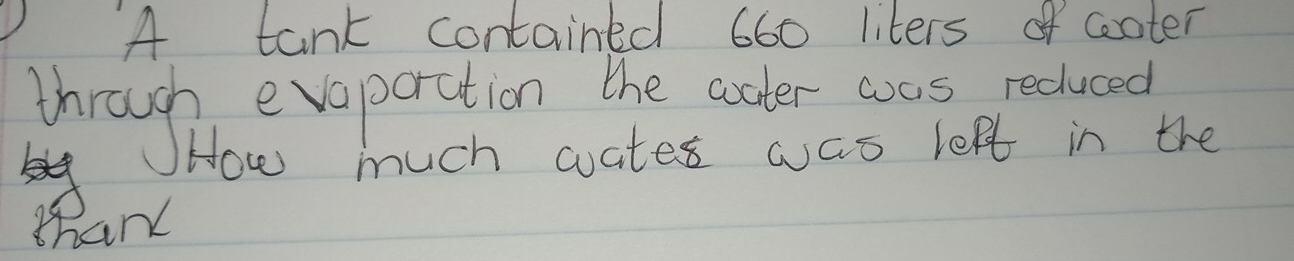 A tank contained 660 liters of water
through evaporation the water was reduced
by How much water was left in the
thank